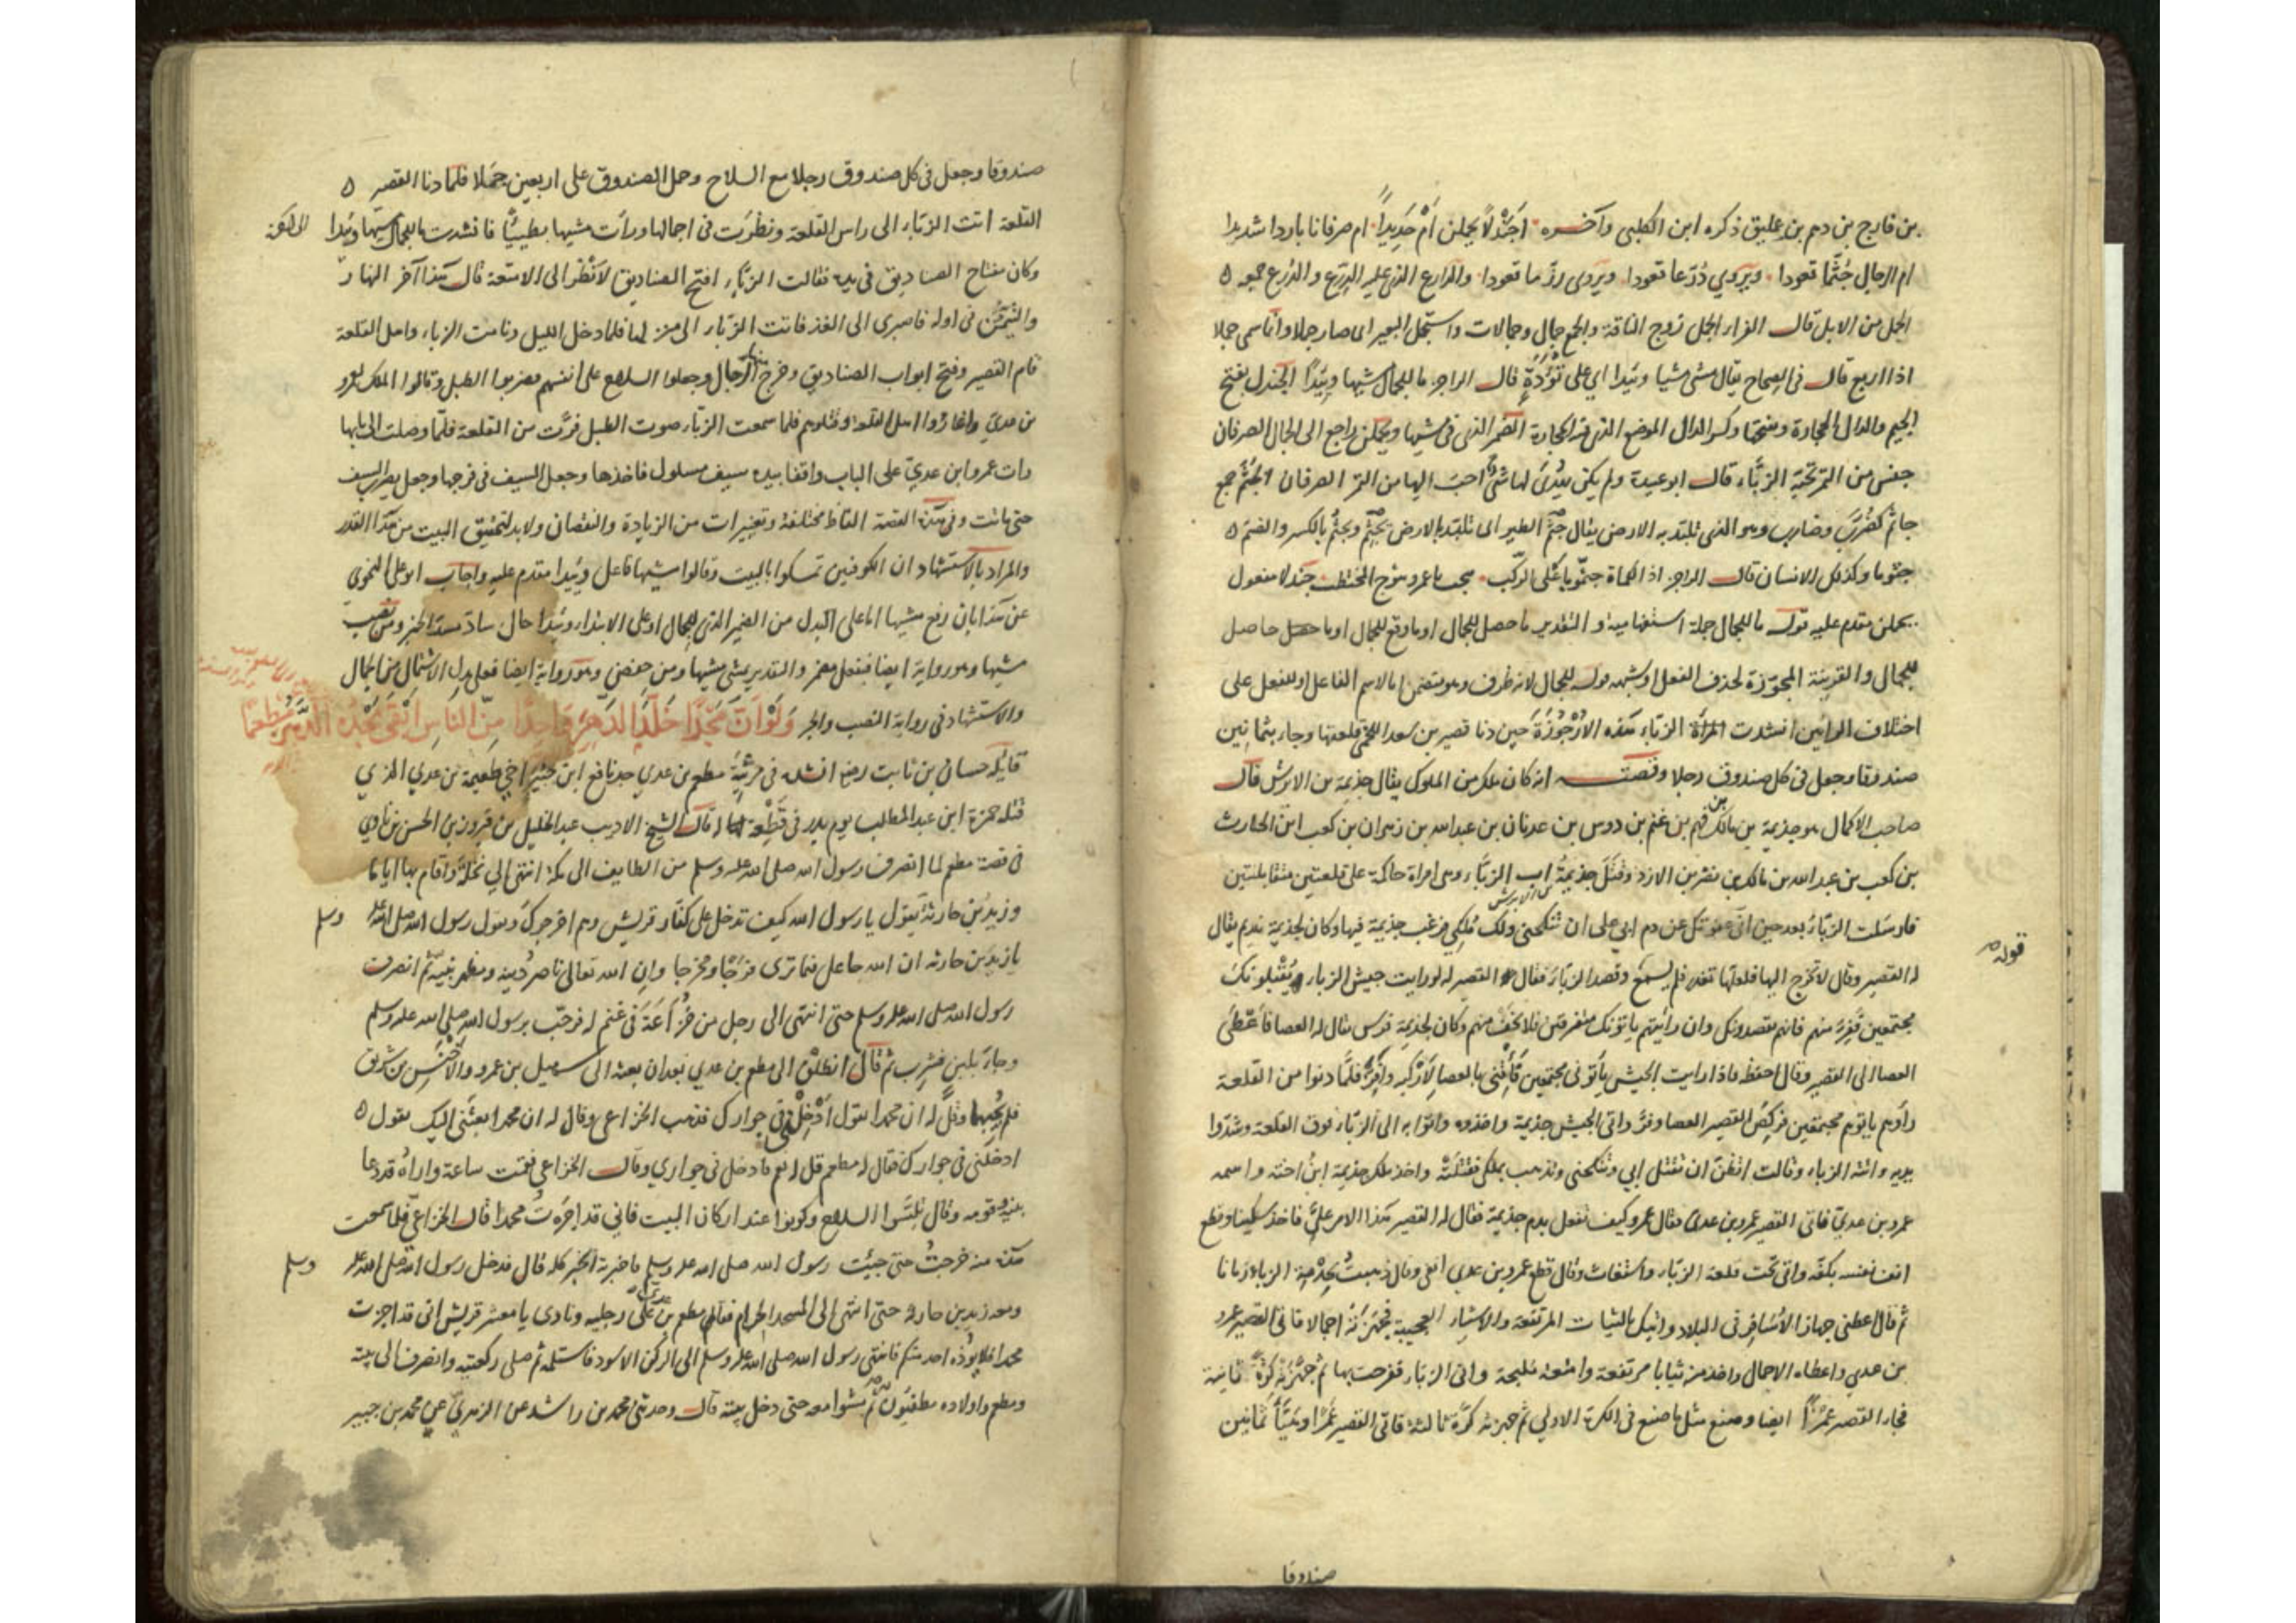 بن فارج بن دهم بن عمليق ذكره ابن الكلبي وآخره اَجَنْدَلاً يحملن اَمْ حَدِيداً ام صرفانا باردا شديدا
ام الرجال جُثَّما قعودا ويروي دُرّعا قعودا ويروى رزّما قعودا والدارع الذى عليه الدرع والدرع جمعه
الجمل من الابل قال الفراء الجمل زوج الناقة والجمع جمال وجمالات واستجمل البعير اى صار جملا وانما سمى جملا
اذا اربع قال فى الصحاح يقال مشى مشيا وئيدا اي على تُؤَدَةٍ قال الراجز ما للجمال مشيها وئِيداً الجندل بفتح
الجيم والدال الحجارة وبفتحها وكسر الدال الموضع الذى فيه الحجارة الضمير الذى فى مشيها ويحملن راجع الى الجمال الصرفان
جنس من التمر تحبه الزبَّاء قال ابو عبيدة ولم يكن يُهْدى لها شئ احب اليها من التمر الصرفان الجُثَّم جمع
جاثم كضُرَّب وضارب وهو الذى تلبّد به الارض يقال جَثَم الطير اى تلبّد بالارض يجثِم ويجثُم بالكسر والضم
جثوما وكذلك الانسان قال الراجز اذا الكماة جثموا على الركب جندلا مفعول
يحملن مقدم عليه قوله ما للجمال جملة استفهامية والتقدير ما حصل للجمال او ما وقع للجمال او ما حصل حاصل
للجمال والقرينة المجوّزة لحذف الفعل او شبهه قوله للجمال لانه ظرف وهو يتضمن اما لاسم الفاعل او للفعل على
اختلاف الرايين انشدت المرأة الزباء هذه الاُرْجُوزَة حين دنا قصير بن سعد اللخمى قلعتها وجاء بثمانين
صندوقا وجعل فى كل صندوق رجلا وقصته انه كان ملك من الملوك يقال جذيمة بن الابرش قال
صاحب الاكمال هو جذيمة بن مالك بن فهم بن غنم بن دوس بن عدنان بن عبدالله بن زهران بن كعب ابن الحارث
بن كعب بن عبد الله بن مالك بن نضر بن الازد وقَتَلَ جذيمةُ اب الزبَّاء وهى امراة حاكمة على قلعتين متقابلتين
فارسَلت الزبّاءُ بعد حين انّى عفوتك عن دم ابي على ان تنكحنى ولك مُلكي فرغب جذيمة فيها وكان لجذيمة نديم يقال
له القصير وقال لا تخرج اليها فلعلها تغدر فلم يسمع وقصد الزبّاءَ فقال القصير له لو رايت جيش الزباء يُقْبلونكَ
مجتمعين فَفِرَّ منهم فانهم يقصدونك وان رأيتهم ياتونك متفرقين فلا تخَفْ منهم وكان لجذيمة فرس يقال له العصا فاَعْطَىَ
العصا الى القصير وقال احفظ فاذا رايت الجيش يأتونى مجتمعين فَأْتِنى بالعصا لاَرْكبه وافِرَّ فلمّا دنوا من القلعة
رأوهم ياتوهم مجتمعين فركضَ القصير العصا وفرَّ واتى الجيش جذيمة واخذوه واتوا به الى الزبّاء فوق القلعة وشدّوا
يديه وانته الزباء وقالت اتظنّ ان تقتل ابي وتنكحنى وتذهب بملكى فقَتَلَتْه واخذ ملك جذيمة ابنُ اخته واسمه
عمرو بن عديّ فاتى القصير عمرو بن عدى فقال عمرو كيف نفعل بدم جذيمة فقال له القصير هذا الامر علىّ فاخذ سكينا وقطع
انف نفسه بكفّه واتى تحت قلعة الزبّاء واستغاث وقال قطع عمرو بن عدي انفى وقال ذهبتُ بخِدْمة الزباء زمانا
ثم قال اعطنى جهاز الأسَافر فى البلاد واتيك بالثياب المرتفعة والاشياء العجيبة فجَهّزتْه اجمالا فاتى القصير عمرو
بن عدي واعطاه الاجمال واخذ من ثيابا مرتفعة وامتعة مليحة واتى الزباء ففرحت بها ثم جهّزته كرّةً ثانية
فجاء القصير عمرًا ايضا وصنع مثل ما صنع فى الكرة الاولى ثم جهزته كرّة ثالثة فاتى القصير عَمْرًا وهَيَّأَ ثمانين
صندوقا
قوله
صندوقا وجعل فى كل صندوق رجلا مع السلاح وحمل الصندوق على اربعين جملا فلما دنا القصير
القلعة اتت الزبّاء الى راس القلعة ونظَرَت فى اجمالها ورأت مشيها بطيئًا فانشدت ما للجمال مشيها وئيدا
وكان مفتاح الصناديق فى يده فقالت الزبّاء افتح الصناديق لاَنْظُر الى الامتعة قال هذا آخر النهار
والتيمّن فى اوله فاصبرى الى الغد فاتت الزبّاء الى منزلها فلما دخل الليل ونامت الزباء واهل القلعة
قام القصير وفتح ابواب الصناديق وخرج الرجال وجعلوا السلاح على انفسهم فضربوا الطبل وقالوا الملك لعمرو
بن عديّ واغاروا اهل القلعة وقتلوهم فلما سمعت الزبّاء صوت الطبل فرَّت من القلعة فلمّا وصلت الى بابها
رات عمرو ابن عديّ على الباب واقفا بيده سيف مسلول فاخذها وجعل السيف فى فرجها وجعل يضرب السيف
حتى ماتت وفى هذه القصة الفاظ مختلفة وتغييرات من الزيادة والنقصان ولا بد لتحقيق البيت من هذا القدر
والمراد بالاستشهاد ان الكوفيين تمسكوا بالبيت وقالوا مشيها فاعل وئيدا مقدم عليه واجاب ابو على النحوى
عن هذا بان رفع مشيها اما على البدل من الضمير الذى للجمال او على الابتداء وئيدا حال سادّ مسدّ الخبر ومن نصب
مشيها وهو رواية ايضا فبفعل مضمر والتقدير يمشى مشيها ومن خفض وهو رواية ايضا فعلى بدل الاشتمال من الجمال
والاستشهاد فى رواية النصب والجر وَلَوْ اَنَّ مَجْدًا خَلَّدَ الدَّهْرَ وَاحِدًا مِنَ النَّاسِ اَبْقَى مَجْدُهُ الدَّهْرَ مُطْعِمًا
قايله حسان بن ثابت رضه انشده فى مرثيّة مطعم بن عدي جد نافع ابن جُبَيْر اخي طعيمة بن عدي الذي
قتله حمزة ابن عبد المطلب يوم بدر قال الشيخ الاديب عبد الجليل بن فيروز بن الحسن
فى قصة مطعم لما انصرف رسول الله صلى الله عليه وسلم من الطايف الى مكة انتهى الي نخلة واقام بها اياما
وزيد بن حارثة يقول يا رسول الله كيف تدخل على كفّار قريش وهم اخرجوكَ ويقول رسول الله صلى الله عليه وسلم
يا زيد بن حارثه ان الله جاعل فيما ترى فرَجًا ومخرجا وان الله تعالى ناصر دُينه ومظهر نبيّه ثم انصرف
رسول الله صلى الله عليه وسلم حتى انتهى الى رجل من خُزَاعَةَ فى غنم له فرحّب برسول الله صلى الله عليه وسلم
وجاءَ بلبن فشرب ثم قال انطلِقْ الى مطعم بن عدي بعد ان بعثه الى سهيل بن عمرو والاَخْنَسِ بن شريق
فلم يُجيبها وقُلْ له ان محمدا يقول أدْخِلْنى فى جوارك فذهب الخزاعى وقال له ان محمدا بعثَنى اليك يقول
ادخلنى فى جوارك فقال له مطعم قل له نعم فادخل فى جواري وقال الخزاعي فقمت ساعة واراهُ قد دعا
بنيه وقومه وقال تلبَّسوا السلاح وكونوا عند اركان البيت فانى قد اجَرْتُ محمدا قال الخزاعيّ فلما سمعت
هذه منه خرجتُ حتى جيئت رسول الله صلى الله عليه وسلم فاخبرته الخبر كله قال فدخل رسول الله صلى الله عليه وسلم
ومعه زيد بن حارثه حتى انتهى الى المسجد الحرام فقام مطعم بن عدى على رجليه ونادى يا معشر قريش انى قد اجرت
محمدا فلا يؤذه احد منكم فانتهى رسول الله صلى الله عليه وسلم الى الركن الاسود فاستلمه ثم صلى ركعتيه وانصرف الى بيته
ومطعم واولاده مطيفون به ثم مشوا معه حتى دخل بيته قال وحدثنى محمد بن راشد عن الزهري عن محمد بن جبير